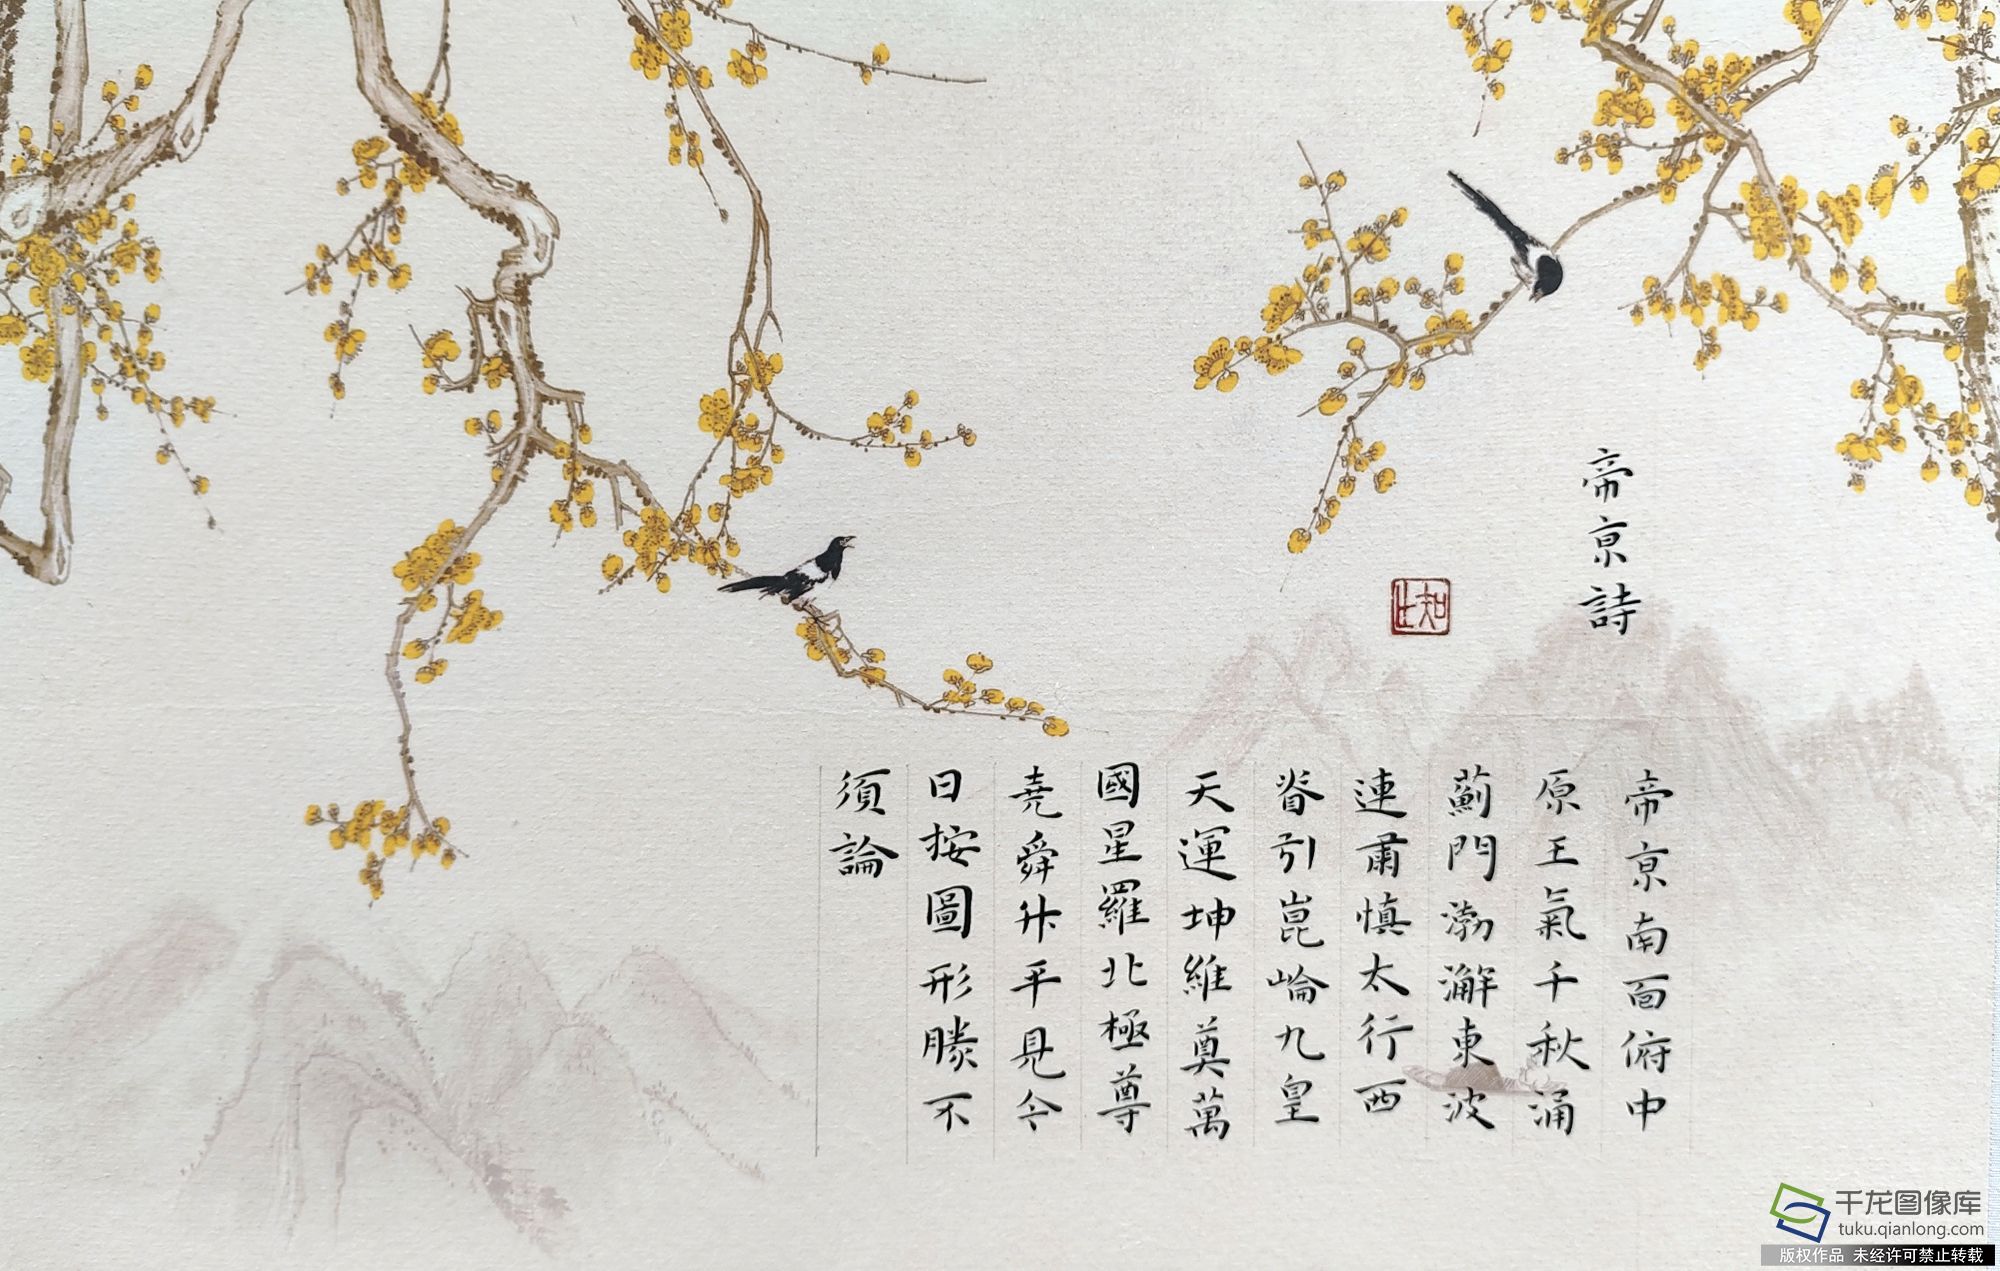 帝京詩
知止
帝京南面俯中
原王氣千秋涌
薊門渤澥東波
連肅慎太行西
脊引崑崙九皇
天運坤維奠萬
國星羅北極尊
堯舜升平見今
日按圖形勝不
須論
千龙图像库
tuku.qianlong.com
版权作品 未经许可禁止转载